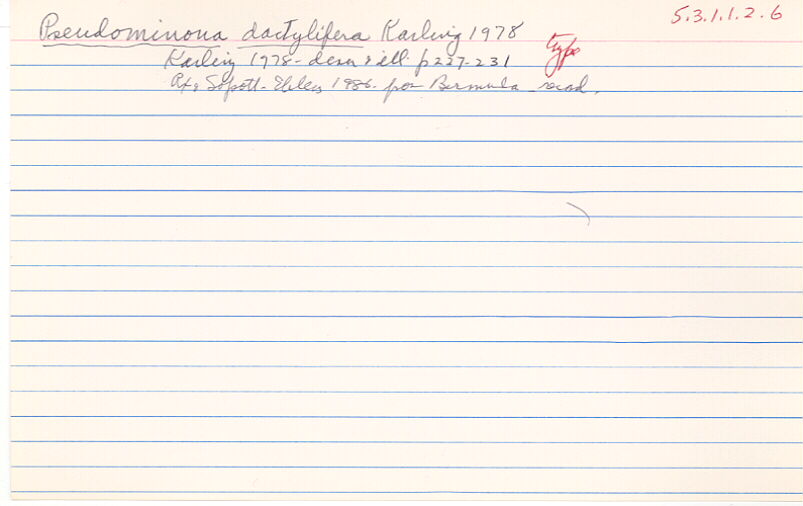 5.3.1.1.2.6
Pseudominona dactylifera Karling 1978
type
Karling 1978 - descr & ill. p 227-231
Sopott-Ehlers 1986. for Bermuda record.